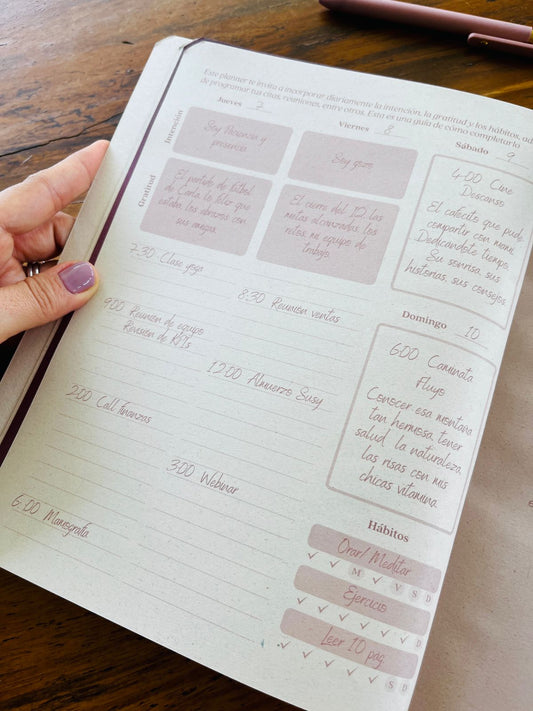 Este planner te invita a incorporar diariamente la intención, la gratitud y los hábitos, ad
de programar tus citas, reuniones, entre otros. Esta es una guía de cómo completarlo
Jueves 7
Viernes 8
Sábado 9
Intención
Soy Presencia y
presencio
Soy gozo
Gratitud
El partido de fútbol
de Carla, lo feliz que
estaba, los abrazos con
sus amigas.
El cierre del 1Q, las
metas alcanzadas, los
retos, mi equipo de
trabajo.
4:00 Cine
Descanso
El cafecito que pude
compartir con mami.
Dedicándole tiempo,
Su sonrisa, sus
historias, sus consejos.
7:30 Clase yoga
8:30 Reunión ventas
9:00 Reunión de equipo
Revisión de KPI's
12:00 Almuerzo Susy
2:00 Call finanzas
3:00 Webinar
6:00 Mamografía
Domingo 10
6:00 Caminata
Fluyo
Conocer esa montaña
tan hermosa, tener
salud, la naturaleza,
las risas con mis
chicas vitamina.
Hábitos
Orar/ Meditar
✓ ✓ M ✓ V S D
Ejercicio
✓ ✓ ✓ ✓ ✓ ✓ D
Leer 10 pág
✓ ✓ ✓ ✓ ✓ S D